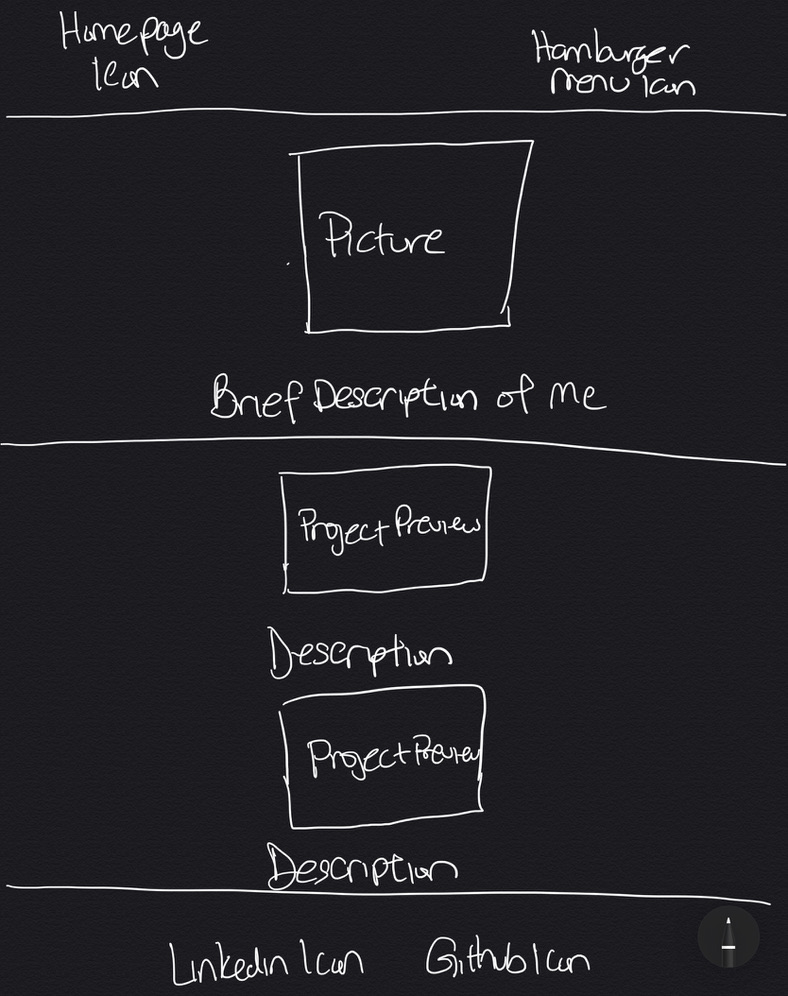 Homepage
Icon
Hamburger
menu Icon
Picture
Brief Description of me
Project Preview
Description
Project Preview
Description
Linkedin Icon Github Icon